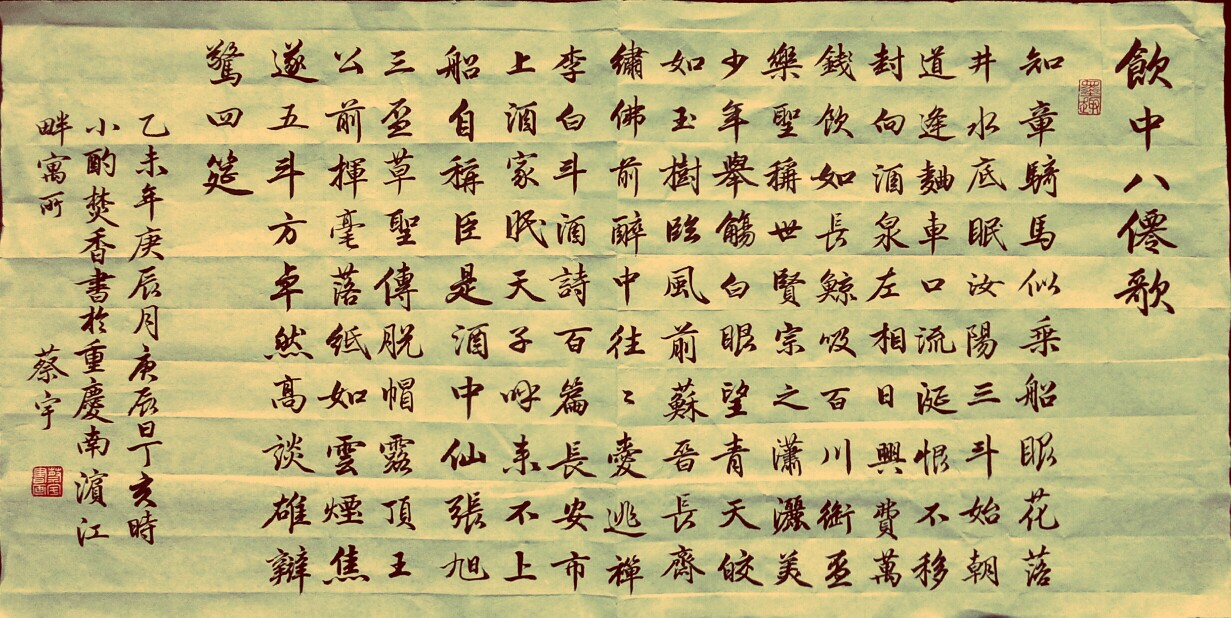 飲中八僊歌
知章騎馬似乗船眼花落
井水底眠汝陽三斗始朝
道逢麯車口流涎恨不移
封向酒泉左相日興費萬
錢飲如長鯨吸百川銜盃
樂聖稱世賢宗之瀟灑美
少年舉觴白眼望青天皎
如玉樹臨風前蘇晉長齋
繡佛前醉中往〻愛逃禪
李白斗酒詩百篇長安市
上酒家眠天子呼来不上
船自稱臣是酒中仙張旭
三盃草聖傳脫帽露頂王
公前揮毫落紙如雲煙焦
遂五斗方卓然高談雄辯
驚四筵
乙未年庚辰月庚辰日丁亥時
小酌焚香書於重慶南濱江
畔寓所
蔡宇